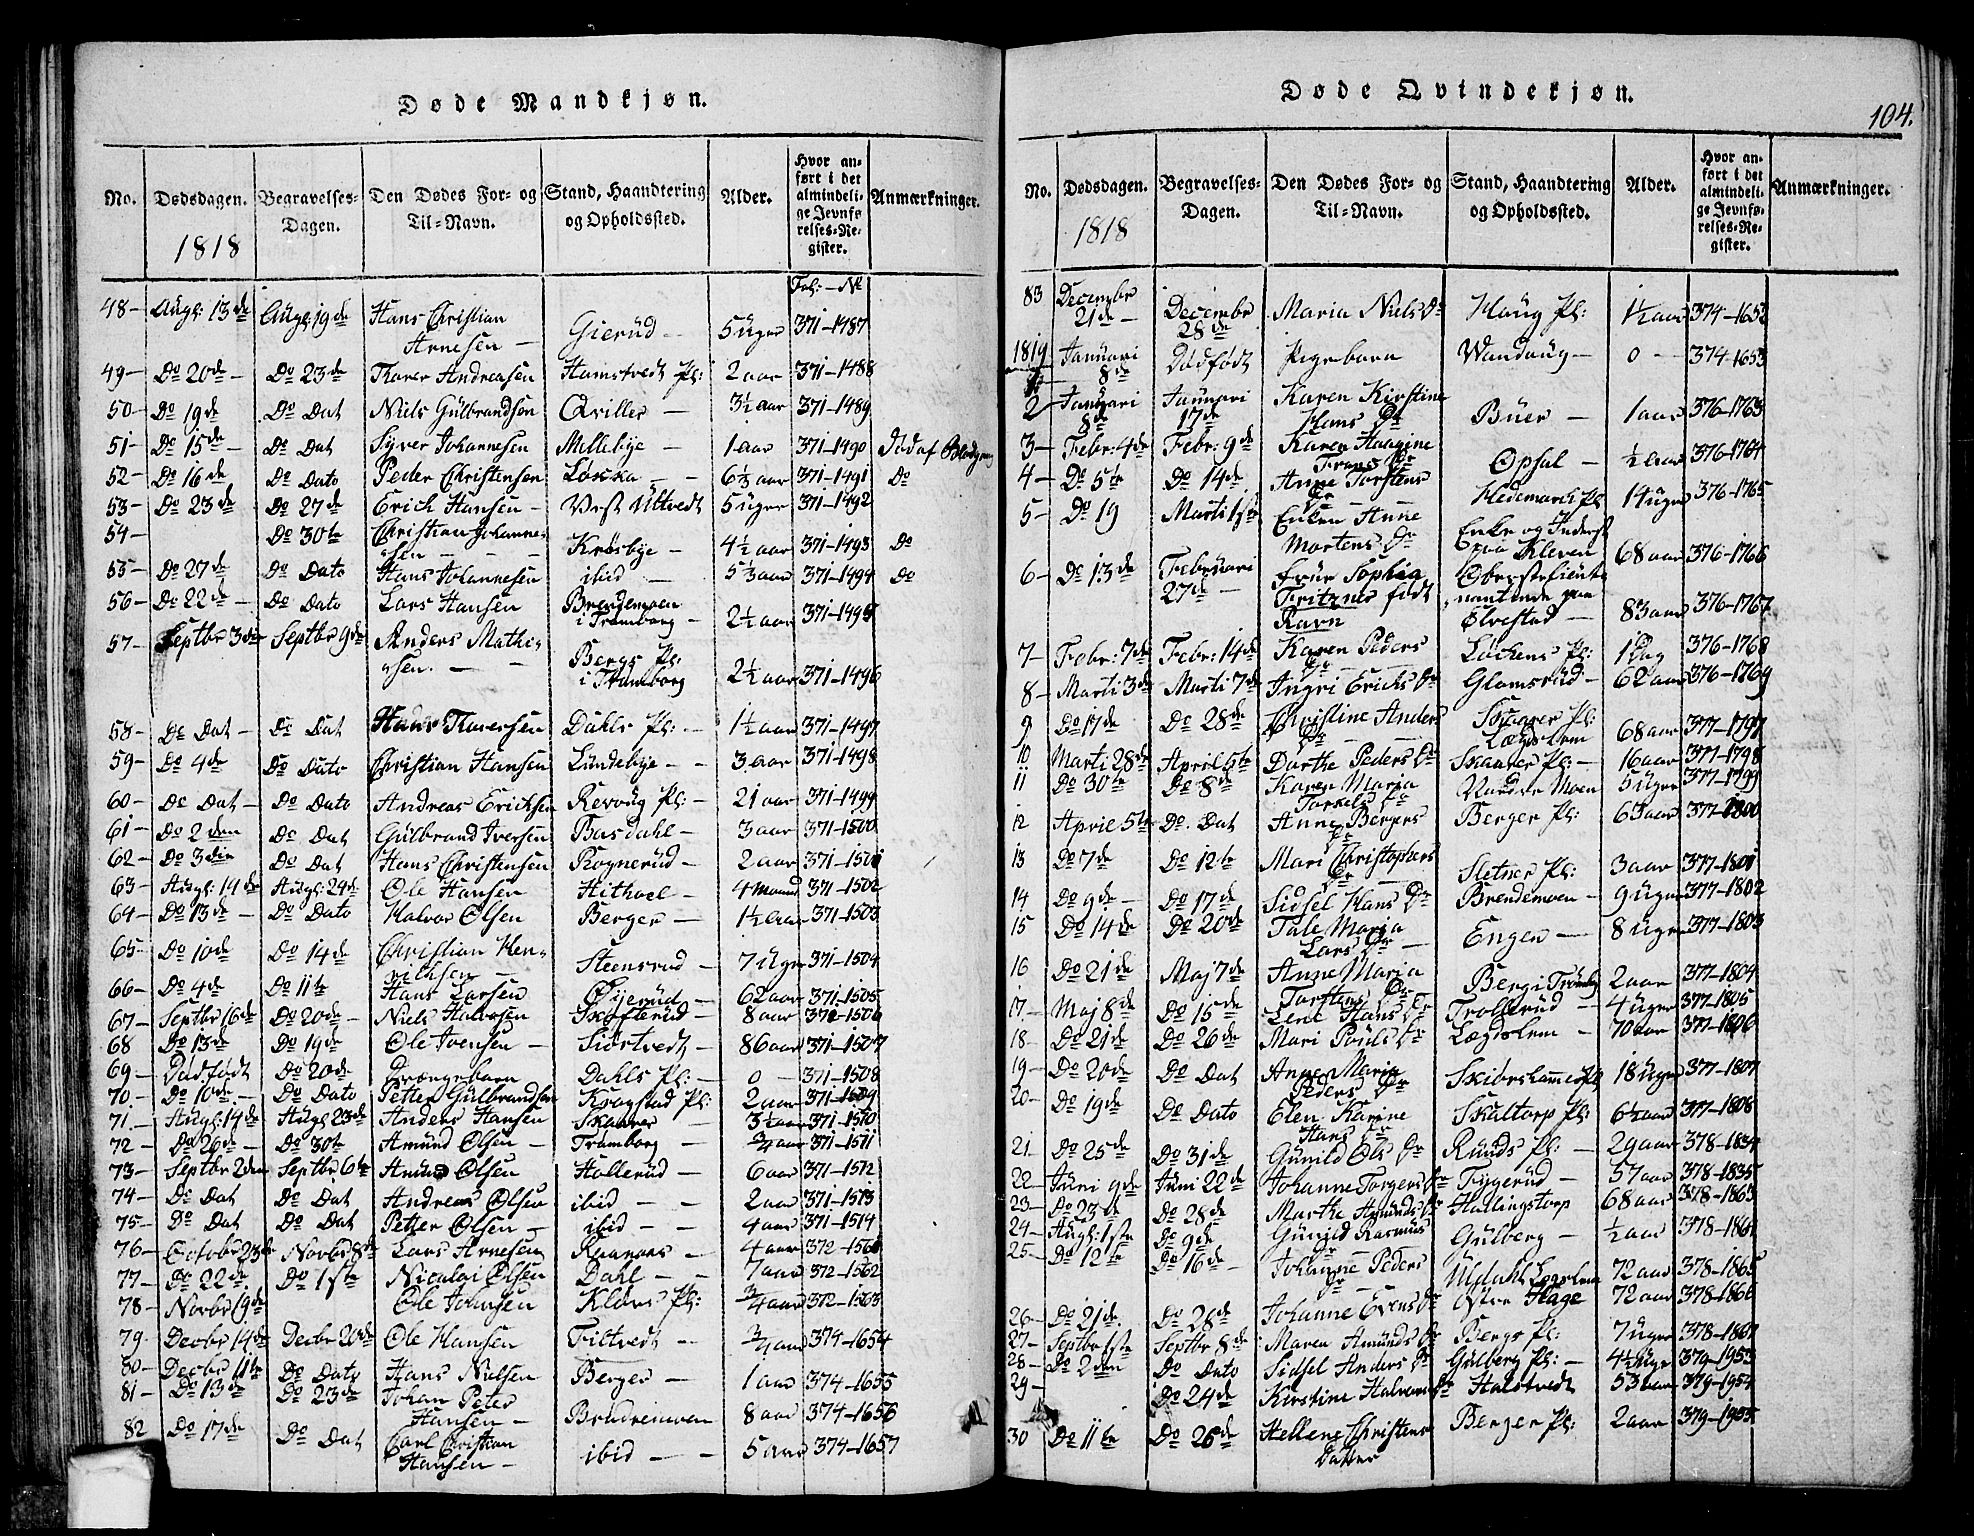 Døde Mandkjøn.
No. Dødsdagen. Begravelses-Dagen. Den Dødes For- og Til-Navn. Stand, Haandtering og Opholdssted. Alder. Hvor anført i det almindelige Jevnførelses-Register. Anmærkninger.
1818
Fol: - No
48 - Augl: 13de Augl: 19de Hans Christian Arnesen - Gierüd - 5 üger 371-1487
49 - Do 20de - Do 23de Thorer Andreasen Hamstvedt Pl: 2 aar 371-1488
50 - Do 19de Do Dat Niels Gülbrandsen Qviller - 3½ aar 371-1489
51 - Do 15de - Do Dat Syver Johannesen Millebye - 1 aar 371-1490 Død af Blodgang
52 - Do 16de Do Dato Peder Christensen Løcka - - 6½ aar 371-1491 Do
53 - Do 23de Do 27de Erich Hansen - Vest Ültvedt 5 üger 371-1492
54 - Do 30te Christian Johannesen - - - Krosbye - 4½ aar 371-1493 Do
55 - Do 27de Do Dato Hans Johannesen ibid - 5⅓ aar 371-1494 Do
56 - Do 22de - Do Dato Lars Hansen Brendemoen i Tramborg - 2½ aar 371-1495
57 - Septbr 3die Septbr 9de Anders Mathisen. - - Bergs Pl: i Tramborg 2½ aar 371-1496
58 - Do Dat - Do Dat Hans Thoresen Dahls Pl: - 1½ aar 371-1497
59 - Do 4de Do Dato Christian Hansen Lündebye - - 3 aar 371-1498
60 - Do Dat - Do Dato Andreas Erichsen Revoug Pl: - 21 aar 371-1499
61 - Do 2den Do Dat Gülbrand Iversen Basdahl - 3 aar 371-1500
62 - Do 3die Do Dat Hans Christensen Rognerüd - 2 aar 371-1501
63 - Augl: 14de Augl: 24de Ole Hansen Hithoel - 4 Maaned 371-1502
64 - Do 13de - Do Dato Halvor Olsen Berger - 1½ aar 371-1503
65 - Do 10de Do 14de Christian Henrichsen - Steensrud - 7 üger 371-1504
66 - Do 4de Do 11te Hans Larsen Øyerüd - 62 aar 371-1505
67 - Septbr 16de Do 20de - Niels Halvorsen Skofterüd - 8 aar 371-1506
68 Do 13de Do 19de Ole Ivensen - Siørtvedt - 86 aar 371-1507
69 - Dødfødt Do 20de Drængebarn Dahls Pl: - 0 - 371-1508
70 - Do 10de - Do Dato Petter Gülbrandsen Krogstad Pl: 2 aar 371-1509
71. Augl: 14de Augl 23de Anders Hansen Skaarer - 3½ aar 371-1510
72 - Do 26de - Do 30te Amünd Olsen - Tramborg - ¾ aar 371-1511
73 - Septbr 2den Septbr 6te Amund Olsen Hollerüd - 6 aar 371-1512
74 - Do Dat Do Dat Andreas Olsen ibid - - 2 aar 371-1513
75 - Do Dat Do Dat Petter Olsen - ibid - - 4 aar 371-1514
76 - Octobr 23de Novbr 8de Lars Arnesen Raanaas - 4 aar 372-1561
77 - Do 22de Do 1ste Nicolai Olsen Dahl - - 7 aar 372-1562
78 - Novbr 19de Ole Johnsen Klovs Pl: ¾ aar 372-1563
79 - Decbr 14de Decbr 20de Ole Hansen Tiltvedt - ¾ aar 374-1654
80 - Decbr 11te Do Dato Hans Nielsen Berger - 1 aar 374-1655
81 - Do 13de Do 23de Johan Peter Hansen - Brendemoen 8 aar 374-1656
82 Do 17de Do Dat Carl Christian Hansen - ibid - - 5 aar 374-1657
Døde Qvindekjøn.
104.
No. Dødsdagen. Begravelses-Dagen. Den Dødes For- og Til-Navn. Stand, Haandtering og Opholdssted. Alder. Hvor anført i det almindelige Jevnførelses-Register. Anmærkninger.
1818
83 Decembr 21de - Decembr 28de Maria Niels Dr Haüg Pl: 1½ aar 374-1652
1819
1 Januari 8de Dødfødt Pigebarn Wandaug - 0 - 374-1653
2 Januari 8de Januari 17de Karen Kirstine Hans Dr Büer - 1 aar 376-1763
3 - Febr: 4de Febr: 9de Karen Haagine Frans Dr Opsal - ½ aar 376-1764
4 - Do 5te Do 14de Anne Torstens Dr - - Hedemarch Pl 14 üger 376-1765
5 - Do 19 Marti 1ste Enken Anne Mortens Dr Enke og Inderst paa Kleven 68 aar 376-1766
6 - Do 13de Februari 27de - Früe Sophia Fritzner født Ravn Oberstelieutnantinde paa Ølvestad - 83 aar 376-1767
7 - Febr: 7de Febr: 14de Karen Peders Dr Løckens Pl: 1 Dag 376-1768
8 - Marti 3de Marti 7de Ingri Erichs Dr Glomsrüd - 62 aar 376-1769
9 Do 17de Do 28de Christine Anders Dr - Skaarer Pl: Lægdslem 68 aar 377-1797
10 Marti 28de April 5te Dorthe Peders Dr Skaarer Pl: - 16 aar 377-1798
11 Do 30te Do 8de Karen Maria Torkels Dr Nordste Moen 5 üger 377-1799
12 April 5te Do Dat Anne Bergers Dr Berger Pl: 63 aar 377-1800
13 Do 7de Do 12te Mari Christophers Dr Sletner Pl: 3 aar 377-1801
14 Do 9de - Do 17de Sidsel Hans Dr Brendemoen - 9 üger 377-1802
15 Do 14de Do 20de Tale Maria Lars Dr - Engen - 8 üger 377-1803
16 Do 21de Maj 7de Anne Maria Torstens Dr Berg i Tromborg 2 aar 377-1804
17 - Maj 8de Do 15de Lene Hans Dr Trollerüd - 4 üger 377-1805
18 - Do 21de Do 26de Mari Pouls Dr Lægdslem - 70 aar 377-1806
19 - Do 20de Do Dat Anne Maria Peders Dr Skiørshammer Pl 18 üger 377-1807
20 - Do 19de Do Dato Elen Karine Hans Dr Skaltorp Pl: 6½ aar 377-1808
21. Do 25de Do 31de Günild Ols Dr Ründs Pl: - 29 aar 378-1834
22 - Juni 9de Juni 22de Johanne Torgers Dr Tyggerüd - 57 aar 378-1835
23 - Do 23de Do 28de Marthe Amünds Dr Hallingstorp 68 aar 378-1863
24 - Augl: 1ste Do 9de Günild Rasmus Dr Gülberg - ½ aar 378-1864
25 - Do 12te Do 16de - Johanne Peders Dr - 72 aar 378-1865
26 - Do 21de Do 28de Johanne Evens Dr Østre Hage 72 aar 378-1866
27 - Septbr 1ste Septbr 8de Maren Amünds Dr Bergs Pl: 7 üger 378-1867
28 - Do 2den Do Dato Sidsel Anders Dr Gülberg Pl: - 4½ üger 379-1953
29 - Do 24de Kirstine Halvors Dr Halstvedt 53 aar 379-1954
30 Do 11te Do 26de Hellene Christens Datter Berger Pl: 2 aar 379-1955